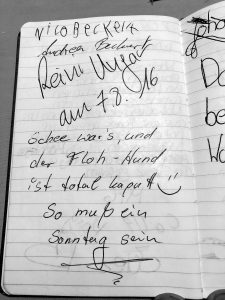 NICO BECKER
Andrea Beckert
Reni Ungar
am 7.8.16
Schee war's, und
der Floh-Hund
ist total kaputt
So muß ein
Sonntag sein
Do
be
Wo